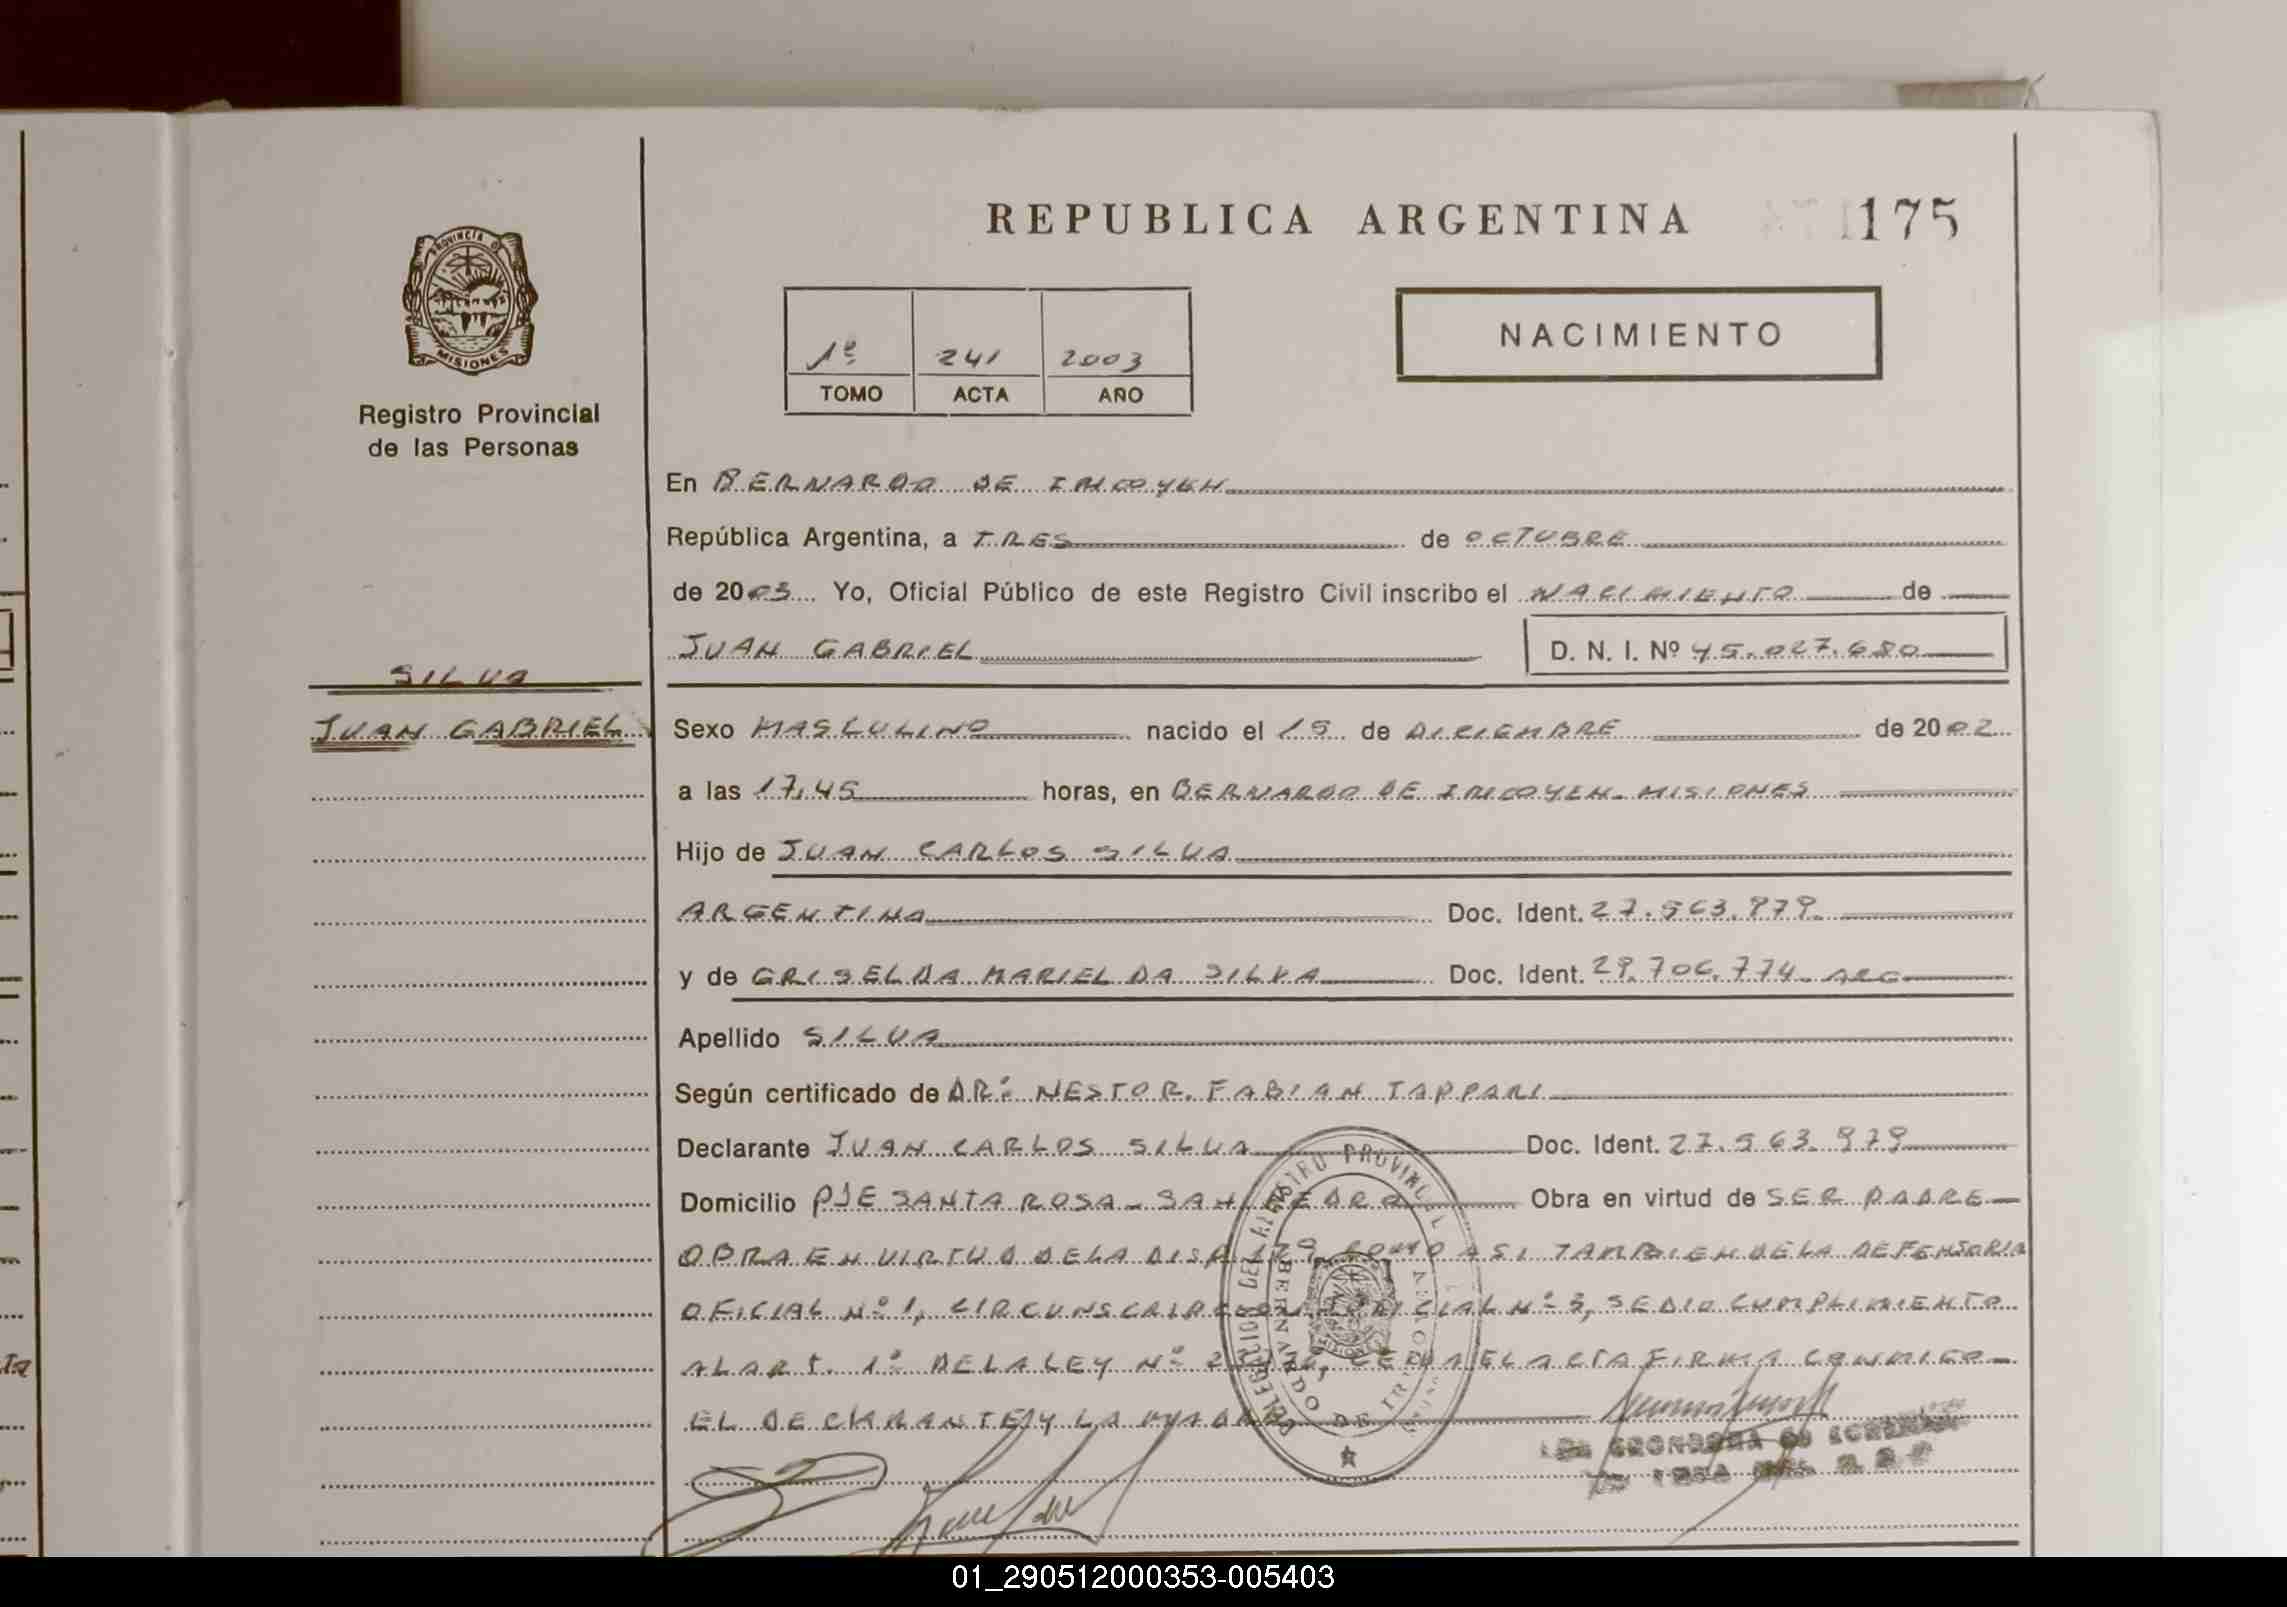 REPUBLICA ARGENTINA 175
PROVINCIA DE
MISIONES
Registro Provincial
de las Personas
1º 241 2003
TOMO ACTA AÑO
NACIMIENTO
En BERNARDO DE IRIGOYEN
República Argentina, a TRES de OCTUBRE
de 2003 Yo, Oficial Público de este Registro Civil inscribo el NACIMIENTO de
JUAN GABRIEL D. N. I. Nº 45.027.680
SILVA
JUAN GABRIEL
Sexo MASCULINO nacido el 15 de DICIEMBRE de 2002
a las 17,45 horas, en BERNARDO DE IRIGOYEN-MISIONES
Hijo de JUAN CARLOS SILVA
ARGENTINA Doc. Ident. 27.563.979
y de GRISELDA MARIEL DA SILVA Doc. Ident. 29.706.774- ARG
Apellido SILVA
Según certificado de DR: NESTOR FABIAN TAPPARI
Declarante JUAN CARLOS SILVA Doc. Ident. 27.563.979
Domicilio PJE SANTA ROSA - SAN PEDRO Obra en virtud de SER PADRE
OBRA EN VIRTUD DE LA DISP. COMO ASI TAMBIEN DE LA DEFENSORIA
OFICIAL Nº 1, CIRCUNSCRIPCION JUDICIAL Nº 3, SE DIO CUMPLIMIENTO
AL ART. 1º DE LA LEY Nº LEIDA EL ACTA FIRMA CONMIGO
EL DECLARANTE Y LA MADRE
DELEGACION DEL REGISTRO PROVINCIAL
BERNARDO DE IRIGOYEN
01_290512000353-005403